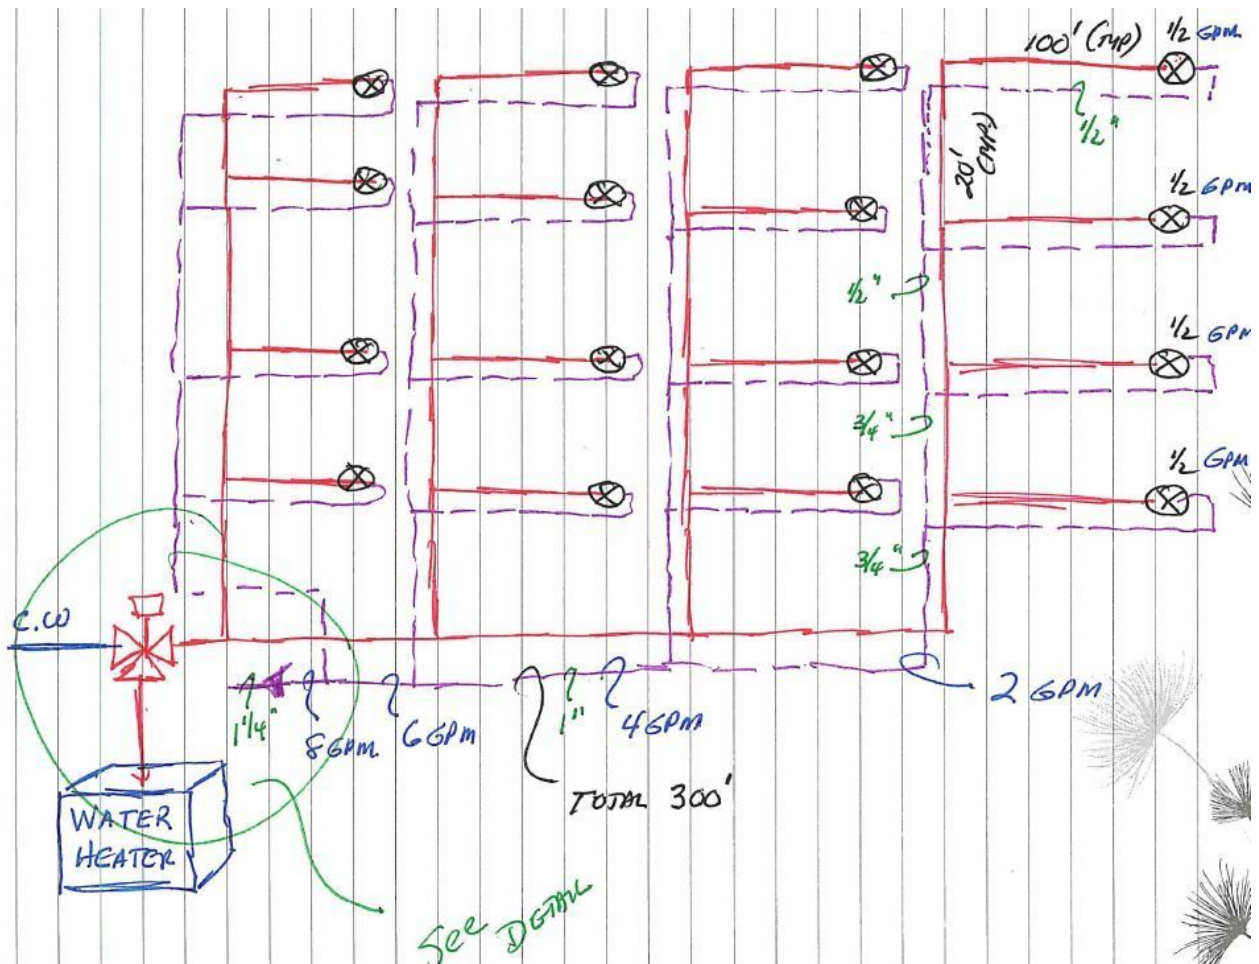 100' (TYP)
1/2 GPM
1/2"
20' (TYP)
1/2 GPM
1/2"
1/2 GPM
3/4"
1/2 GPM
3/4"
C.W
2 GPM
1 1/4"
8 GPM
6 GPM
1"
4 GPM
TOTAL 300'
WATER
HEATER
See DETAIL